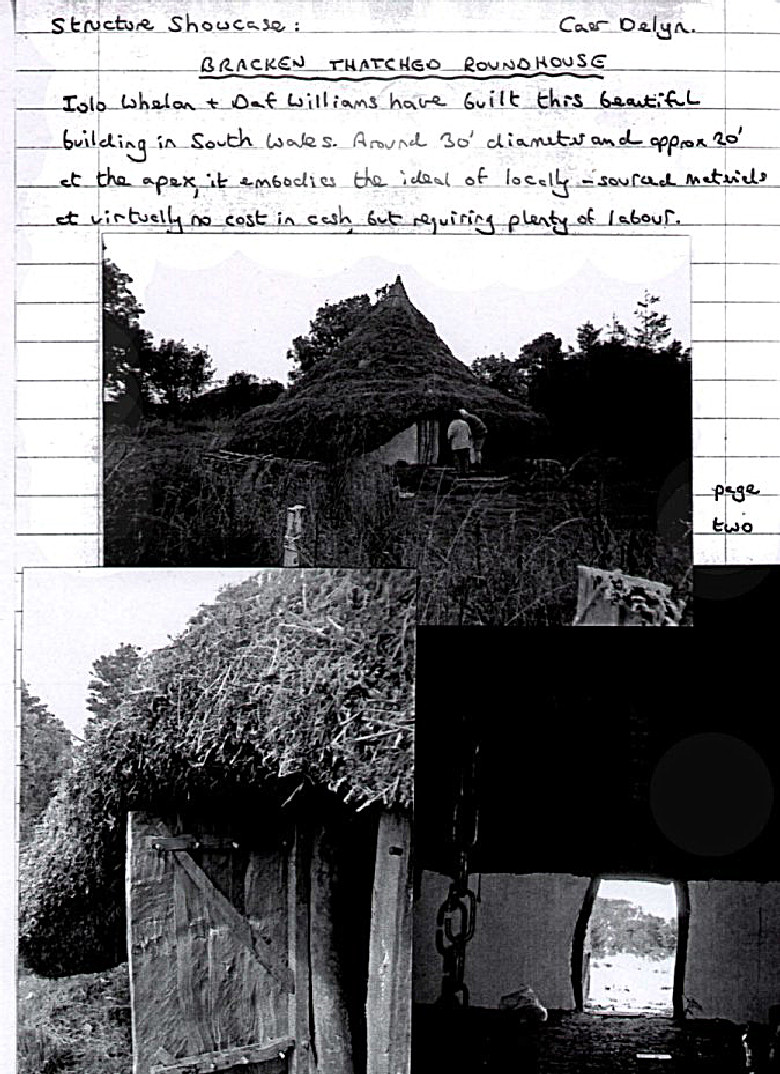 Structure Showcase: Caer Delyn.
BRACKEN THATCHED ROUNDHOUSE
Iolo Whelan + Daf Williams have built this beautiful
building in South Wales. Around 30' diameter and approx 20'
at the apex, it embodies the ideal of locally-sourced materials
at virtually no cost in cash, but requiring plenty of labour.
page
two